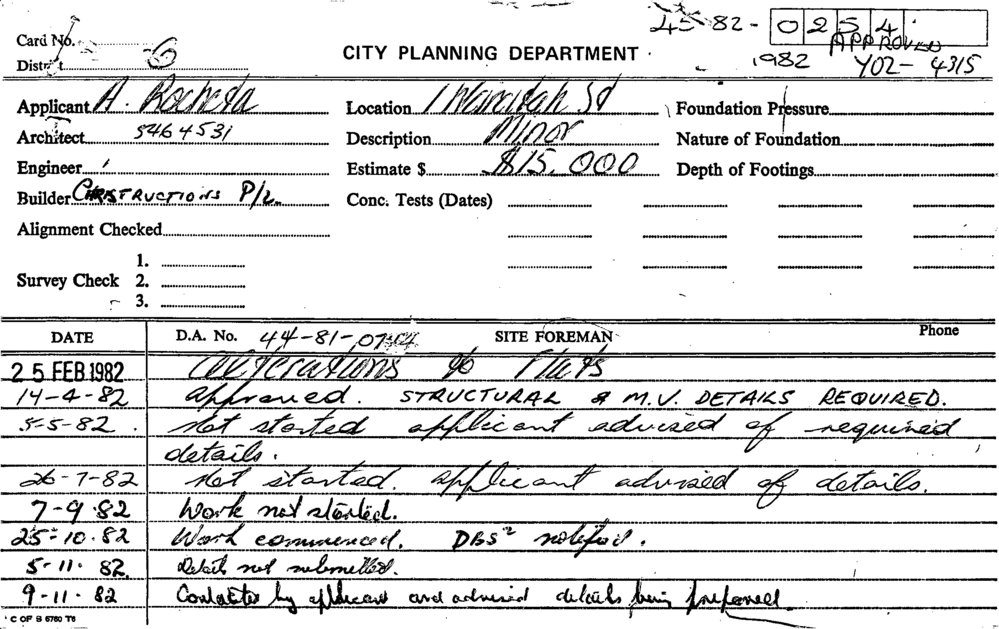 45-82-0254
Card No.
APPROVED
CITY PLANNING DEPARTMENT
District 6
1982 Y02-4315
Applicant A. Rocheta Location 1 St Foundation Pressure
Architect 5464531 Description Minor Nature of Foundation
Engineer Estimate $ $15,000 Depth of Footings
Builder P/L Conc. Tests (Dates)
Alignment Checked
1.
Survey Check 2.
3.
DATE D.A. No. 44-81- SITE FOREMAN Phone
25 FEB 1982 Alterations to Flats
14-4-82 approved. STRUCTURAL & M.V. DETAILS REQUIRED.
5-5-82. Not started applicant advised of required
details.
26-7-82 Not started. applicant advised of details.
7-9.82 Work not started.
25-10.82 Work commenced. DBS notified.
5-11.82. Details not submitted.
9-11.82 Contacted by applicant and advised details being prepared.
C OF S 6760 T6